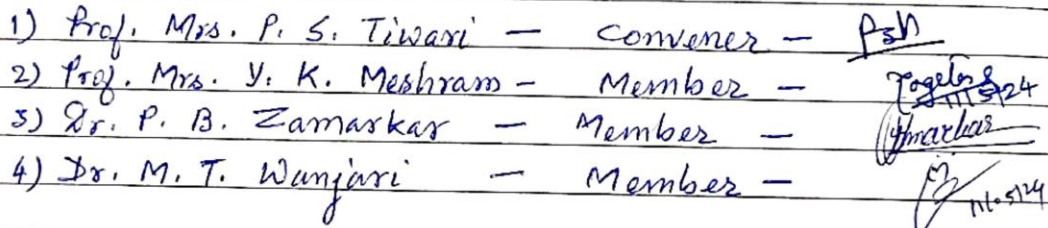 1) Prof. Mrs. P. S. Tiwari — Convener —
2) Prof. Mrs. Y. K. Meshram — Member —
3) Dr. P. B. Zamarkar — Member —
4) Dr. M. T. Wanjari — Member —